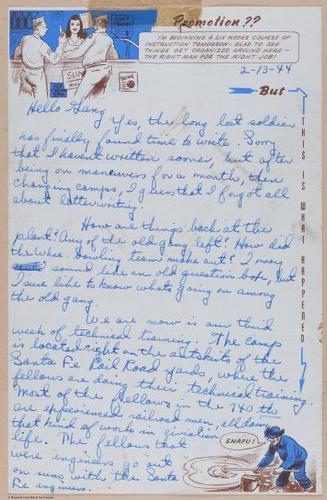 Promotion??
I'M BEGINNING A SIX WEEKS COURSE OF
INSTRUCTION TOMORROW - GLAD TO SEE
THINGS GET ORGANIZED AROUND HERE -
THE RIGHT MAN FOR THE RIGHT JOB!
2-13-44
But
THIS IS WHAT HAPPENED
Hello Gang
Yes, the long lost soldier
has finally found time to write. Sorry
that I havent written sooner, but after
being on maneuvers for a month, then
changing camps, I guess that I forgot all
about letter writing.
How are things back at the
plant? Any of the old gang left? How did
the Whse. Bowling team make out? I may
sound like an old question box, but
I sure like to know whats going on among
the old gang.
We are now in our third
week of technical training. The camp
is located right on the outskirts of the
Santa Fe Rail Road yards, where the
fellows are doing their technical training.
Most of the fellows in the 740 th
are experienced railroad men, all doing
that kind of work in civilian
life. The fellows that
were engineers go out
on runs with the Santa
Fe engineers.
SNAFU!